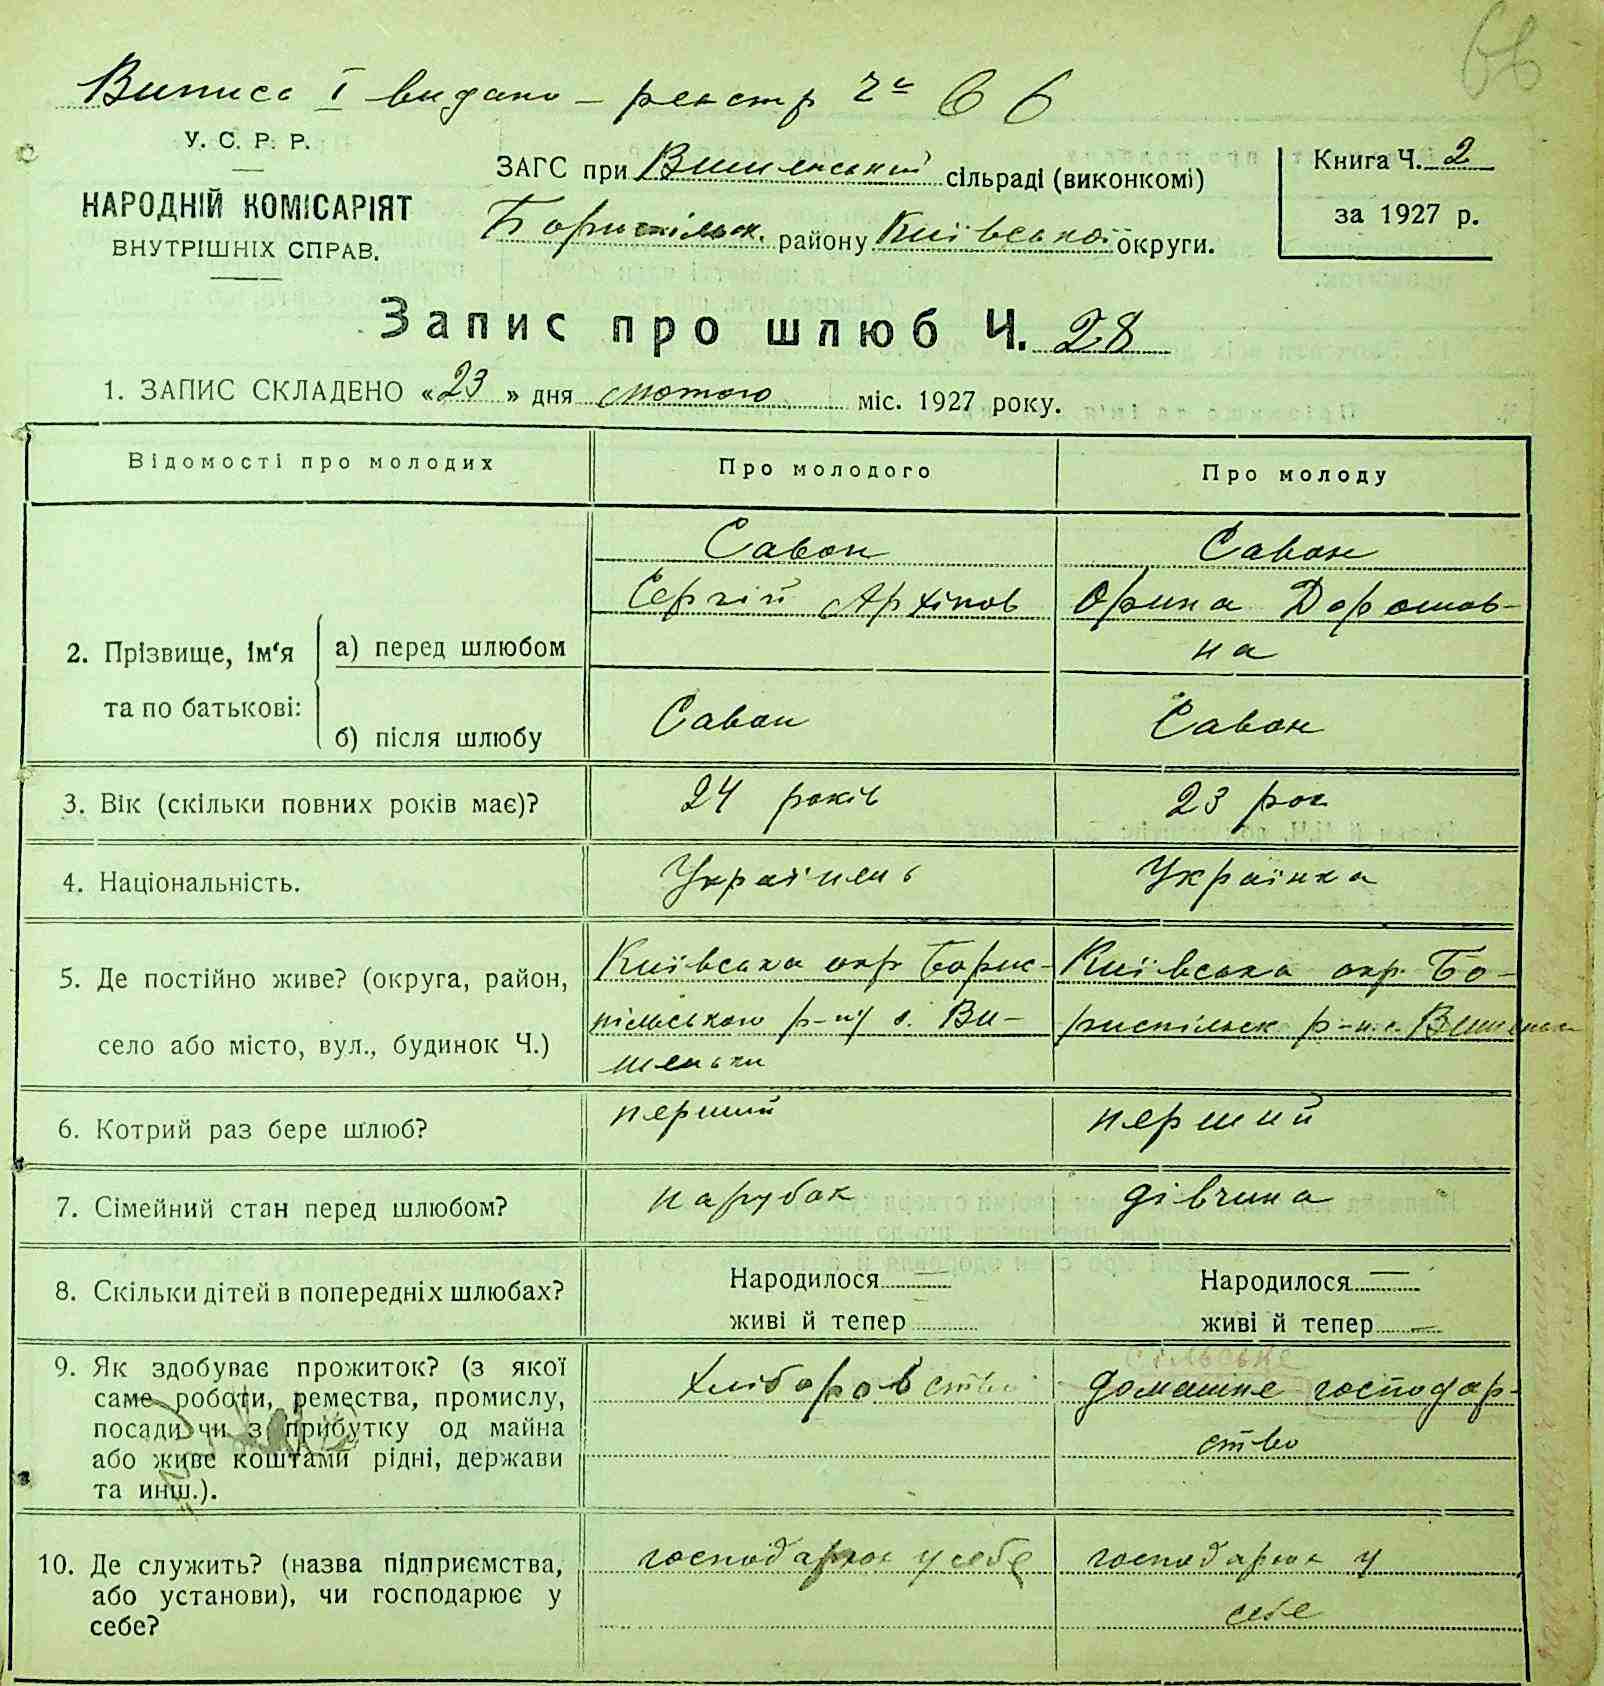 66
Випись І видано – реєстр Ч 66
У. С. Р. Р.
НАРОДНІЙ КОМІСАРІЯТ
ВНУТРІШНІХ СПРАВ.
ЗАГС при Вишенській сільраді (виконкомі)
Бориспільськ. району Київської округи.
Книга Ч. 2
за 1927 р.
Запис про шлюб Ч. 28
1. ЗАПИС СКЛАДЕНО «23» дня лютого міс. 1927 року.
Відомості про молодих
Про молодого
Про молоду
2. Прізвище, ім'я
та по батькові:
а) перед шлюбом
Савон
Сергій Архіпов
Савон
Орина Дорошов-
на
б) після шлюбу
Савон
Савон
3. Вік (скільки повних років має)?
24 років
23 рок
4. Національність.
Українець
Українка
5. Де постійно живе? (округа, район,
село або місто, вул., будинок Ч.)
Київська окр Борис-
пільського р-ну с. Ви-
шеньки
Київська окр. Бо-
риспільськ р-н с. Вишеньки
6. Котрий раз бере шлюб?
перший
перший
7. Сімейний стан перед шлюбом?
парубок
дівчина
8. Скільки дітей в попередніх шлюбах?
Народилося —
живі й тепер
Народилося —
живі й тепер —
9. Як здобуває прожиток? (з якої
саме роботи, ремества, промислу,
посади чи з прибутку од майна
або живе коштами рідні, держави
та инш.).
Хліборобство
сільське
домашнє господар-
ство
10. Де служить? (назва підприємства,
або установи), чи господарює у
себе?
господарює у себе
господарює у
себе